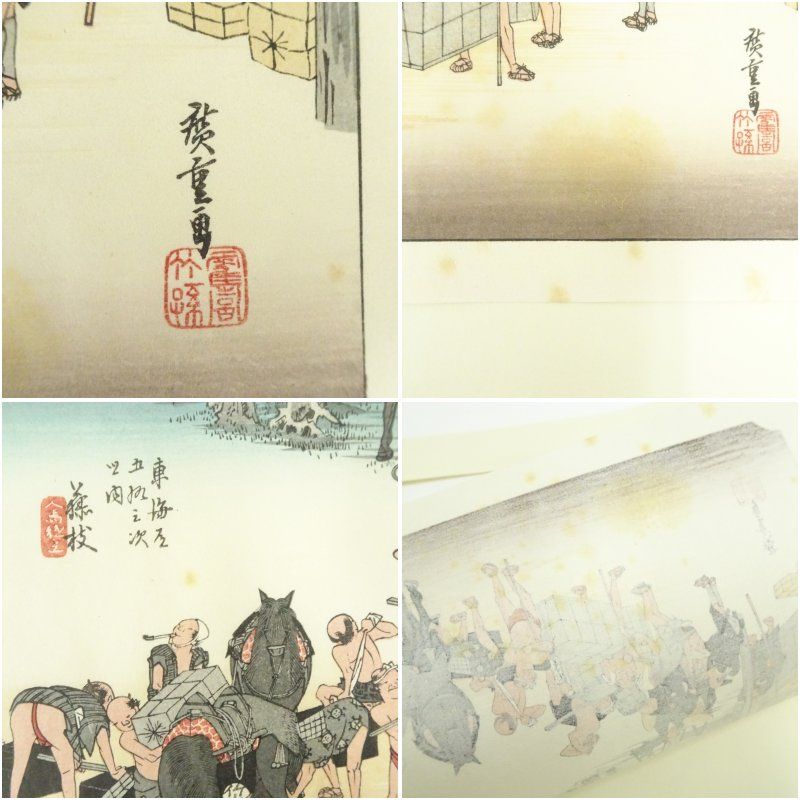 廣重画
竹孫
廣重画
竹孫
東海道
五拾三次
之内
藤枝
人馬継立